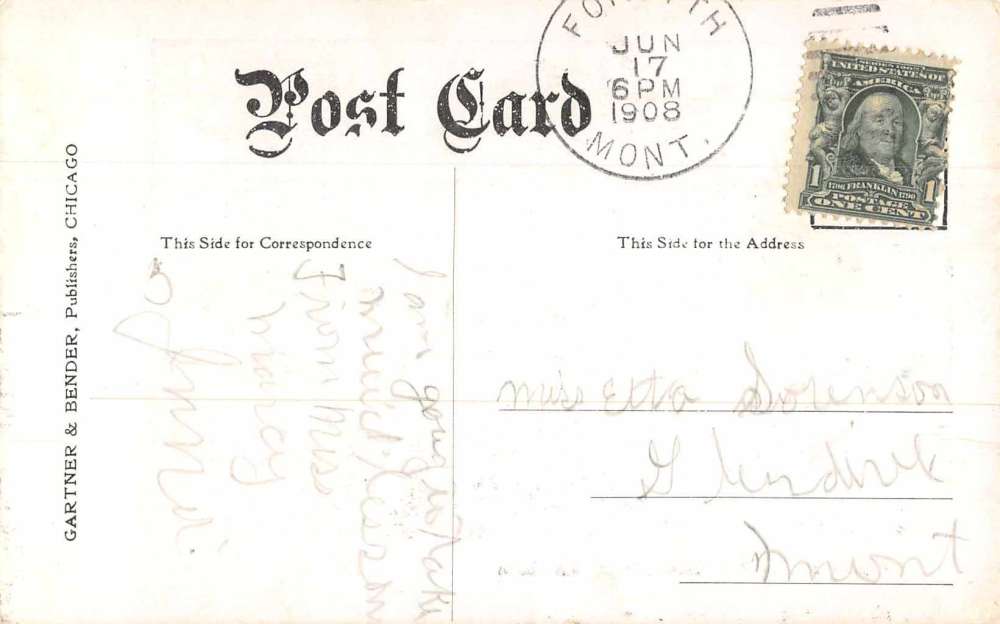 Post Card
FORSYTH
JUN
17
6 PM
1908
MONT.
SERIES 1902
UNITED STATES OF
AMERICA
1706 FRANKLIN 1790
1 1
POSTAGE
ONE CENT
GARTNER & BENDER, Publishers, CHICAGO
This Side for Correspondence
This Side for the Address
I am going to take
music lesson
From Miss
Miss Etta Sorenson
Glendive
Mont